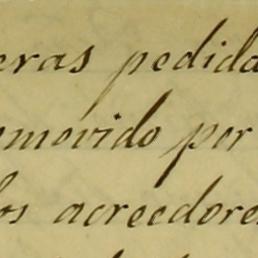 eras pedida
omovido por
los acreedores